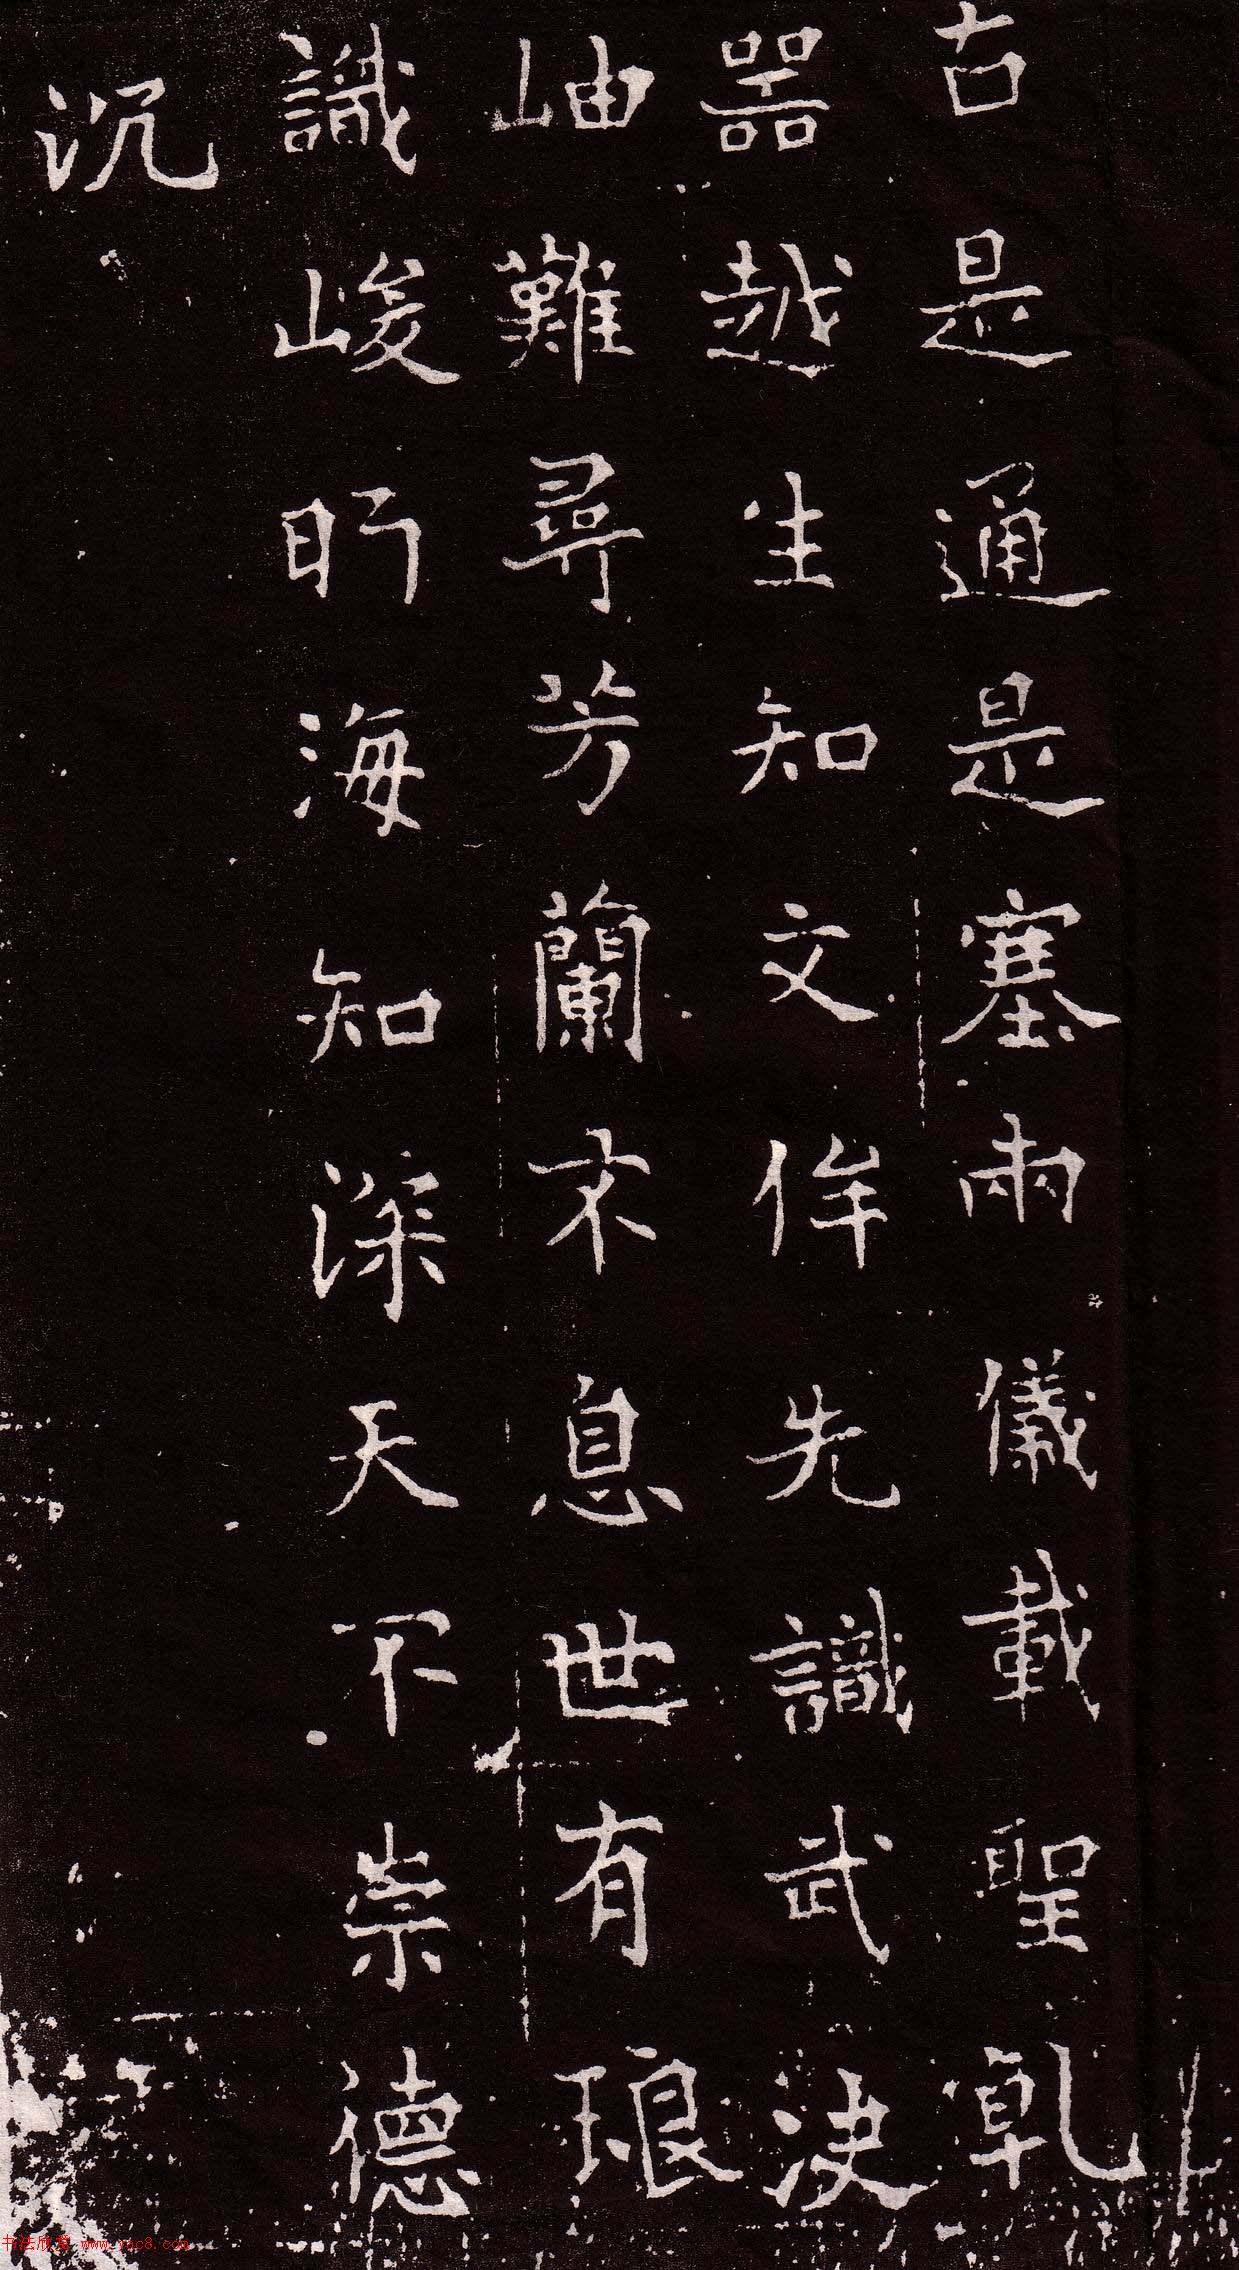 古是通是塞雨儀載聖乹
噐越生知文侔先識武決
岫難尋芳蘭不息世有琅
識峻眄海知深天下崇德
沉
书法欣赏 www.yac8.com